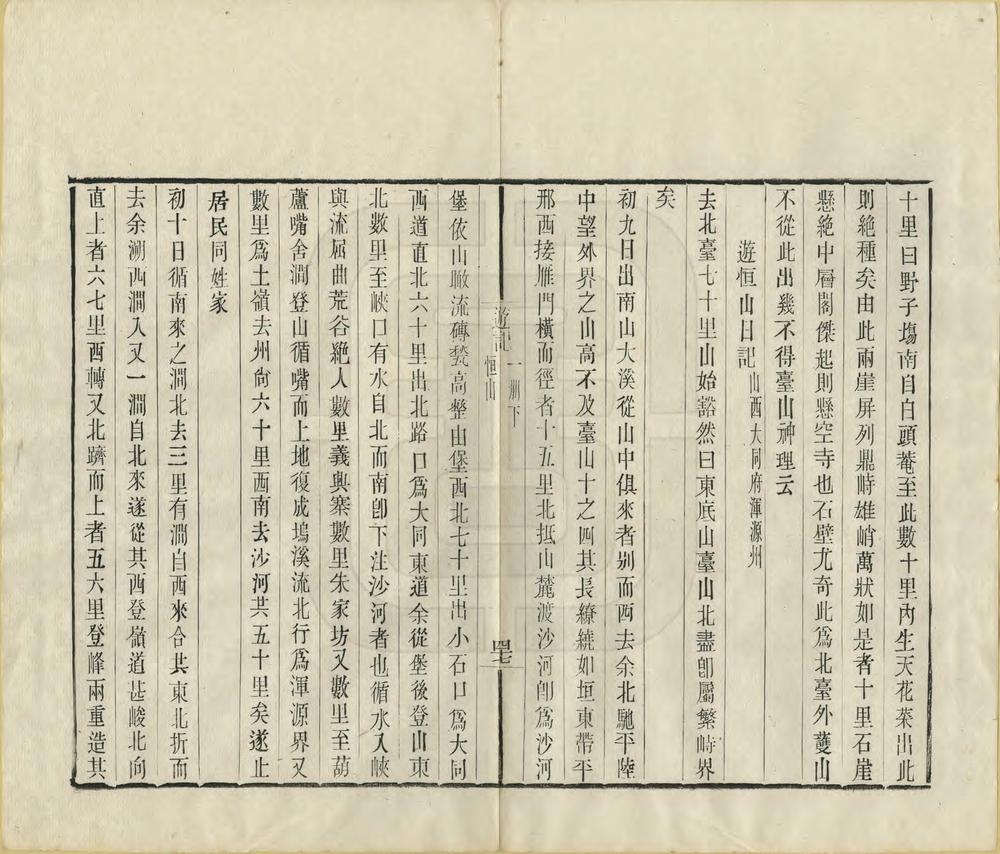 十里曰野子塲南自白頭菴至此數十里內生天花菜出此
則絶種矣由此兩崖屏列鼎峙雄峭萬狀如是者十里石崖
懸絶中層閣傑起則懸空寺也石壁尤奇此爲北臺外護山
不從此出幾不得臺山神理云
遊恒山日記山西大同府渾源州
去北臺七十里山始豁然曰東底山臺山北盡卽屬繁峙界
矣
初九日出南山大溪從山中俱來者别而西去余北馳平陸
中望外界之山高不及臺山十之四其長繚繞如垣東帶平
邢西接雁門橫而徑者十五里北抵山麓渡沙河卽爲沙河
遊記 一册下
恒山
四七
堡依山瞰流磚甃高整由堡西北七十里出小石口爲大同
西道直北六十里出北路口爲大同東道余從堡後登山東
北數里至峽口有水自北而南卽下注沙河者也循水入峽
與流屈曲荒谷絶人數里義興寨數里朱家坊又數里至葫
蘆嘴舍澗登山循嘴而上地復成塢溪流北行爲渾源界又
數里爲土嶺去州尙六十里西南去沙河共五十里矣遂止
居民同姓家
初十日循南來之澗北去三里有澗自西來合共東北折而
去余溯西澗入又一澗自北來遂從其西登嶺道甚峻北向
直上者六七里西轉又北躋而上者五六里登峰兩重造其